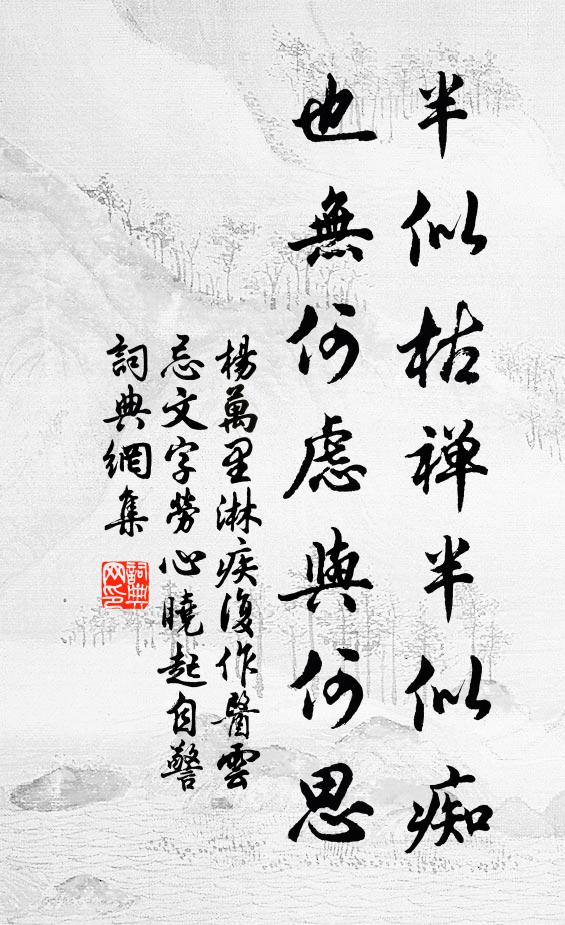 半似枯禅半似痴
也無何慮與何思
楊萬里淋疾復作醫雲
忌文字勞心曉起自警
詞典網集
詞典
网印